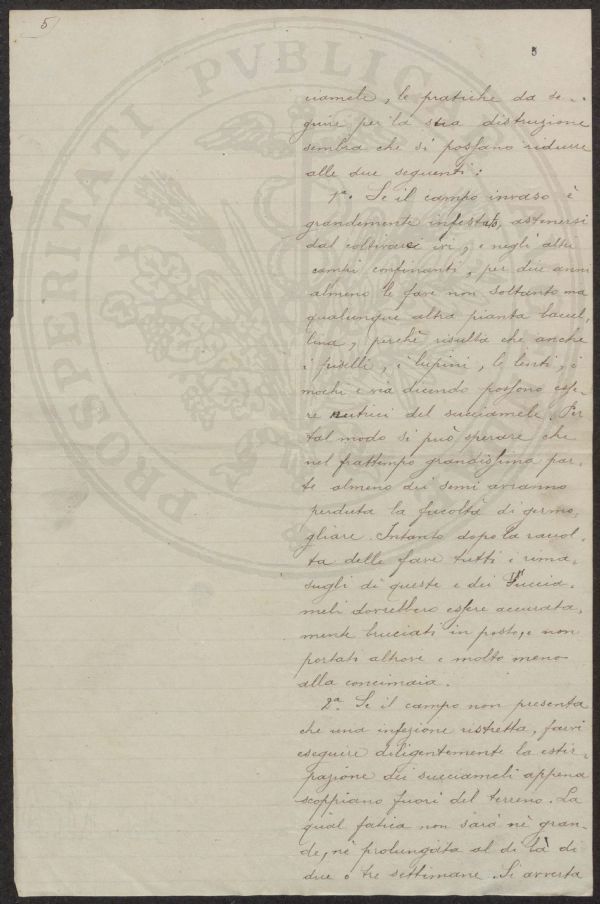 5
5
PROSPERITATI PVBLICAE
ciamele, le pratiche da se-
guire per la sua distruzione
sembra che si possano ridurre
alle due seguenti:
1ª. Se il campo invaso è
grandemente infestato, astenersi
dal coltivarci ivi, e negli altri
campi confinanti, per due anni
almeno le fave non soltanto ma
qualunque altra pianta baccel-
lina, perchè risulta che anche
i piselli, i lupini, le lenti, i
mochi e via dicendo possono esse-
re nutrici del succiamele. Per
tal modo si può sperare che
nel frattempo grandissima par-
te almeno dei semi avranno
perduta la facoltà di germo-
gliare. Intanto dopo la raccol-
ta delle fave tutti i rima-
sugli di queste e dei Succia-
meli dovrebbero essere accurata-
mente bruciati in posto, e non
portati altrove e molto meno
alla concimaia.
2ª. Se il campo non presenta
che una infezione ristretta, farvi
eseguire diligentemente la estir-
pazione dei succiameli appena
scoppiano fuori del terreno. La
qual fatica non sarà nè gran-
de, nè prolungata al di là di
due o tre settimane. Si avverta